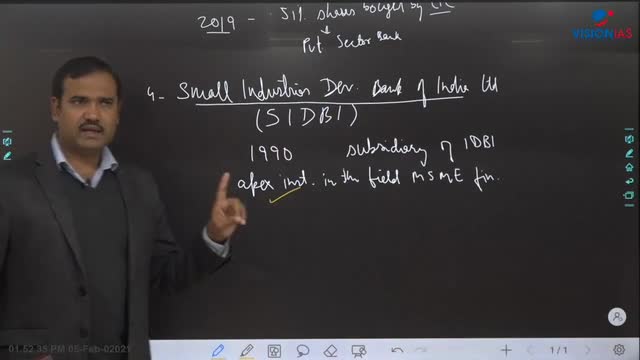 2019 - 51% shares bought by LIC
Pvt Sector Bank
VISIONIAS
4- Small Industries Dev. Bank of India Ltd
(SIDBI)
1990 subsidiary of IDBI
apex inst. in the field MSME fin.
01:52:35 PM 05-Feb-02021
1/1